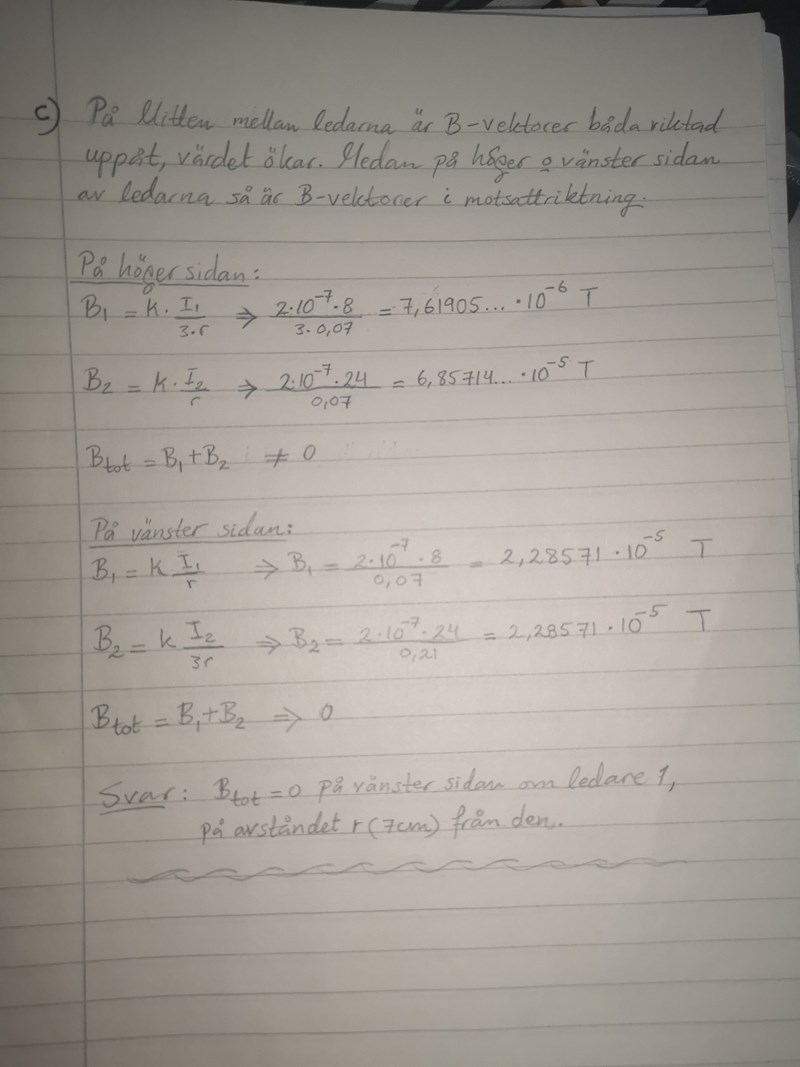 c) På Mitten mellan ledarna är B-vektorer båda riktad
uppåt, värdet ökar. Medan på höger o vänster sidan
av ledarna så är B-vektorer i motsattriktning.
På höger sidan:
B₁ = k · I₁/3·r ⇒ 2·10⁻⁷·8/3·0,07 = 7,61905... · 10⁻⁶ T
B₂ = k · I₂/r ⇒ 2·10⁻⁷·24/0,07 = 6,85714... · 10⁻⁵ T
Btot = B₁ + B₂ ≠ 0
På vänster sidan:
B₁ = k I₁/r ⇒ B₁ = 2·10⁻⁷·8/0,07 = 2,28571 · 10⁻⁵ T
B₂ = k I₂/3r ⇒ B₂ = 2·10⁻⁷·24/0,21 = 2,28571 · 10⁻⁵ T
Btot = B₁ + B₂ ⇒ 0
Svar: Btot = 0 på vänster sidan om ledare 1,
på avståndet r (7cm) från den.